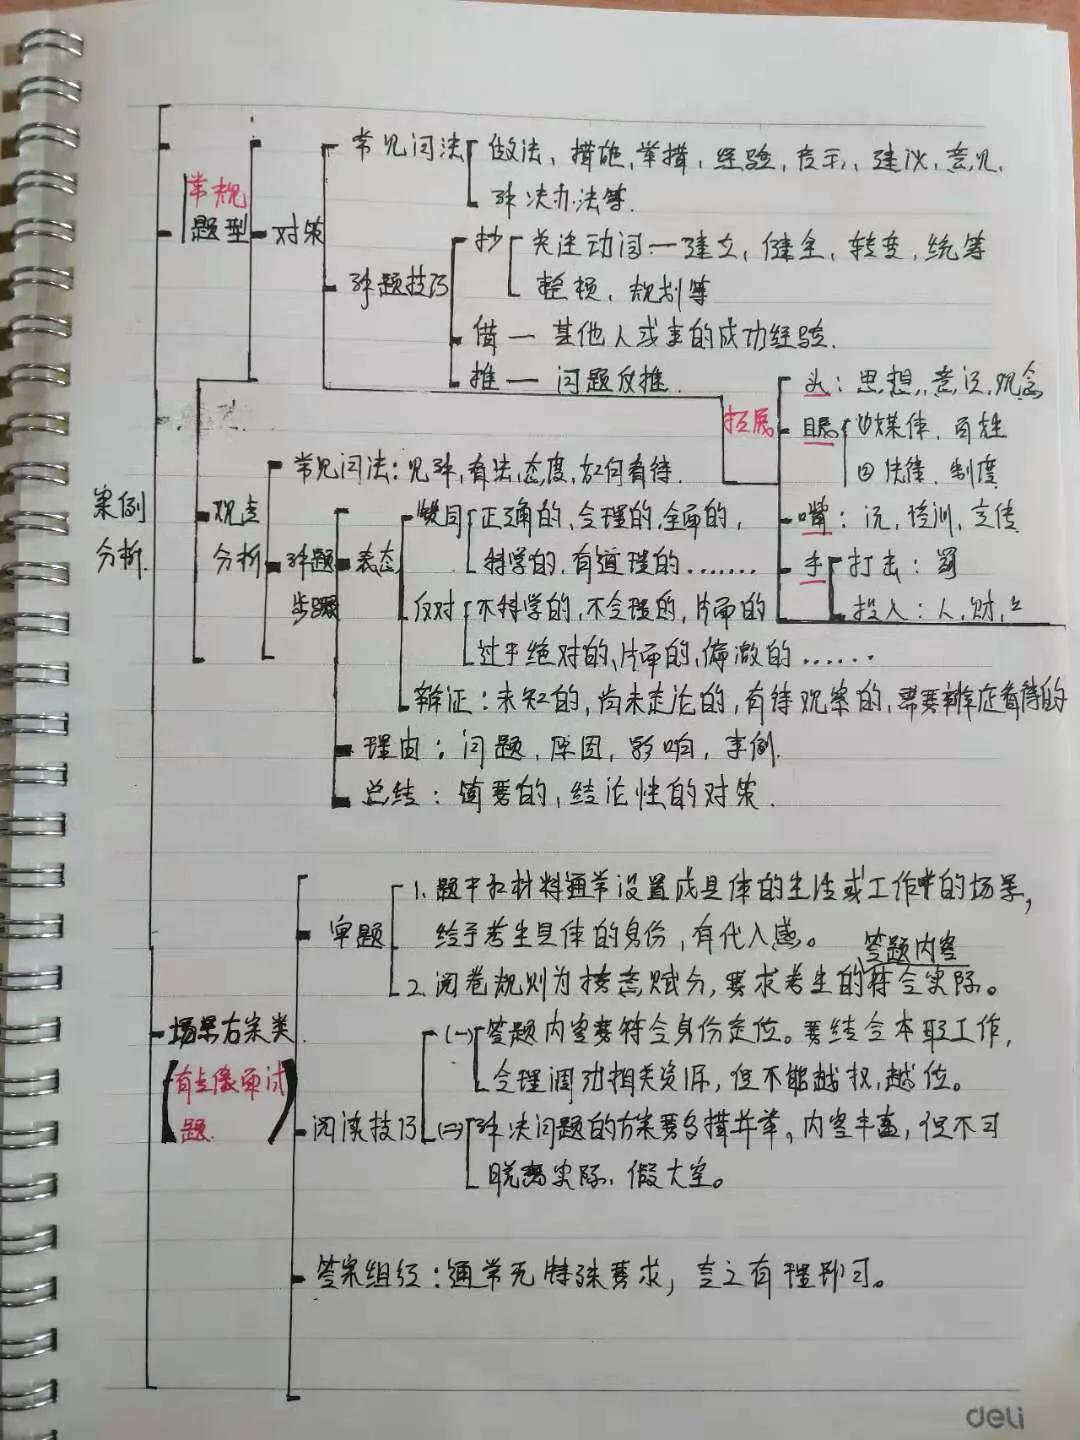 常见问法 做法、措施、举措、经验、启示、建议、意见、
解决办法等.
常规
题型
对策
抄 关注动词—建立，健全，转变，统筹
整顿、规划等
解题技巧
借 — 其他人或事的成功经验.
推 — 问题反推.
拓展
头：思想，意识，观念
眼 ①媒体、百姓
②法律、制度
嘴：说，培训，宣传
手 打击：罚
投入：人，财，
案例
分析.
观点
分析
常见问法：见解，看法，态度，如何看待.
解题
步骤
表态
赞同 正确的、合理的，全面的，
科学的，有道理的.......
反对 不科学的，不合理的，片面的
过于绝对的、片面的，偏激的......
辩证：未知的，尚未定论的，有待观察的，需要辩证看待的
理由：问题，原因，影响，事例.
总结：简要的，结论性的对策.
审题
1. 题干和材料通常设置成具体的生活或工作中的场景，
给予考生具体的身份，有代入感。
答题内容
2. 阅卷规则为按意赋分，要求考生的符合实际。
场景方案类
(有点像面试
题.)
阅读技巧
(一) 答题内容要符合身份定位。要结合本职工作，
合理调动相关资源，但不能越权，越位。
(二) 解决问题的方案要多措并举，内容丰富，但不可
脱离实际、假大空。
答案组织：通常无特殊要求，言之有理即可。
deli